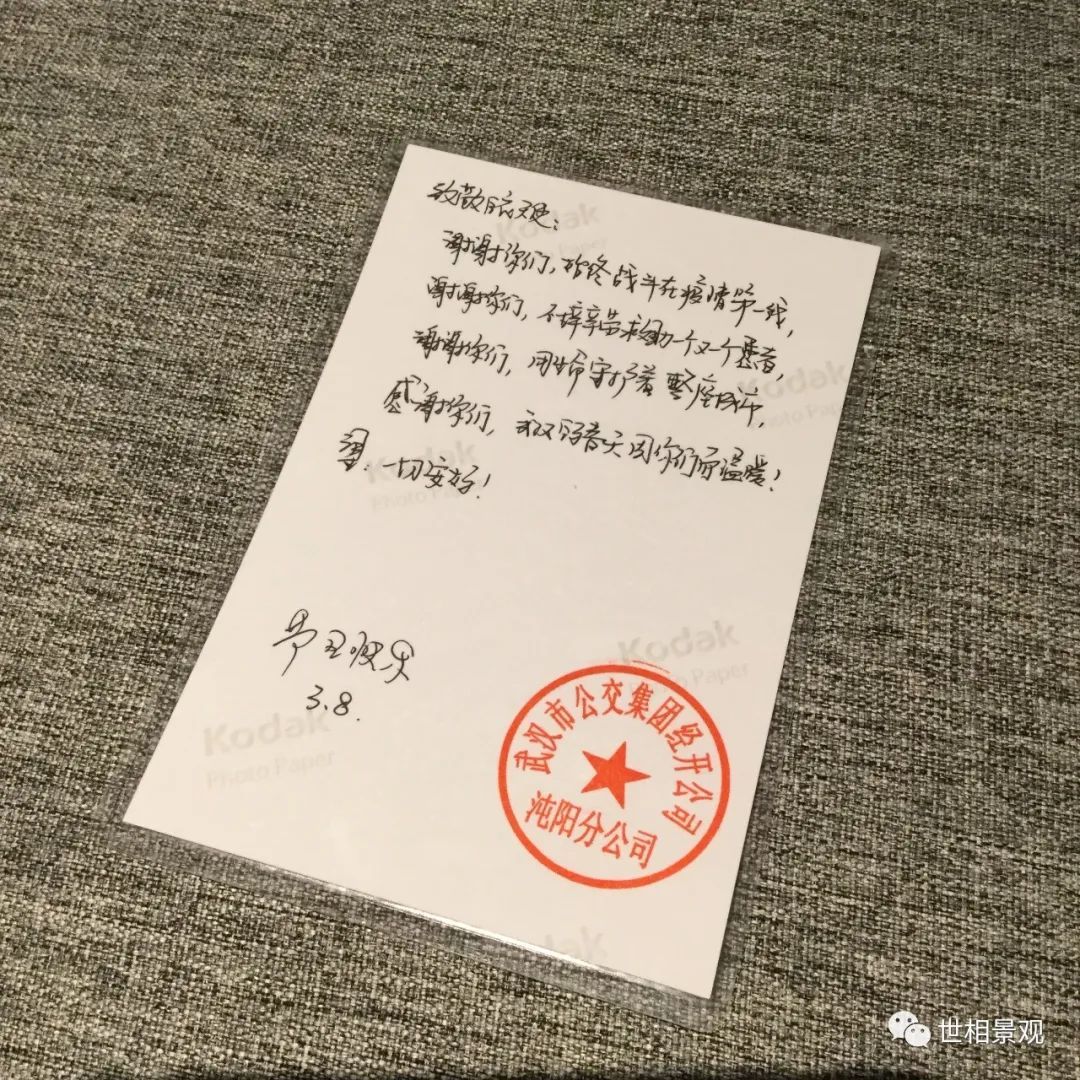 致敬白衣天使：
谢谢你们，始终战斗在疫情第一线，
谢谢你们，不辞辛苦救助一个又一个患者，
谢谢你们，用生命守护着整座城市，
感谢你们，武汉的春天因你们而温暖！
愿：一切安好！
节日快乐
3.8.
武汉市公交集团经开公司
沌阳分公司
Kodak
Photo Paper
Kodak
Photo Paper
Kodak
Photo Paper
Kodak
Photo Paper
Kodak
Photo Paper
Kodak
世相景观